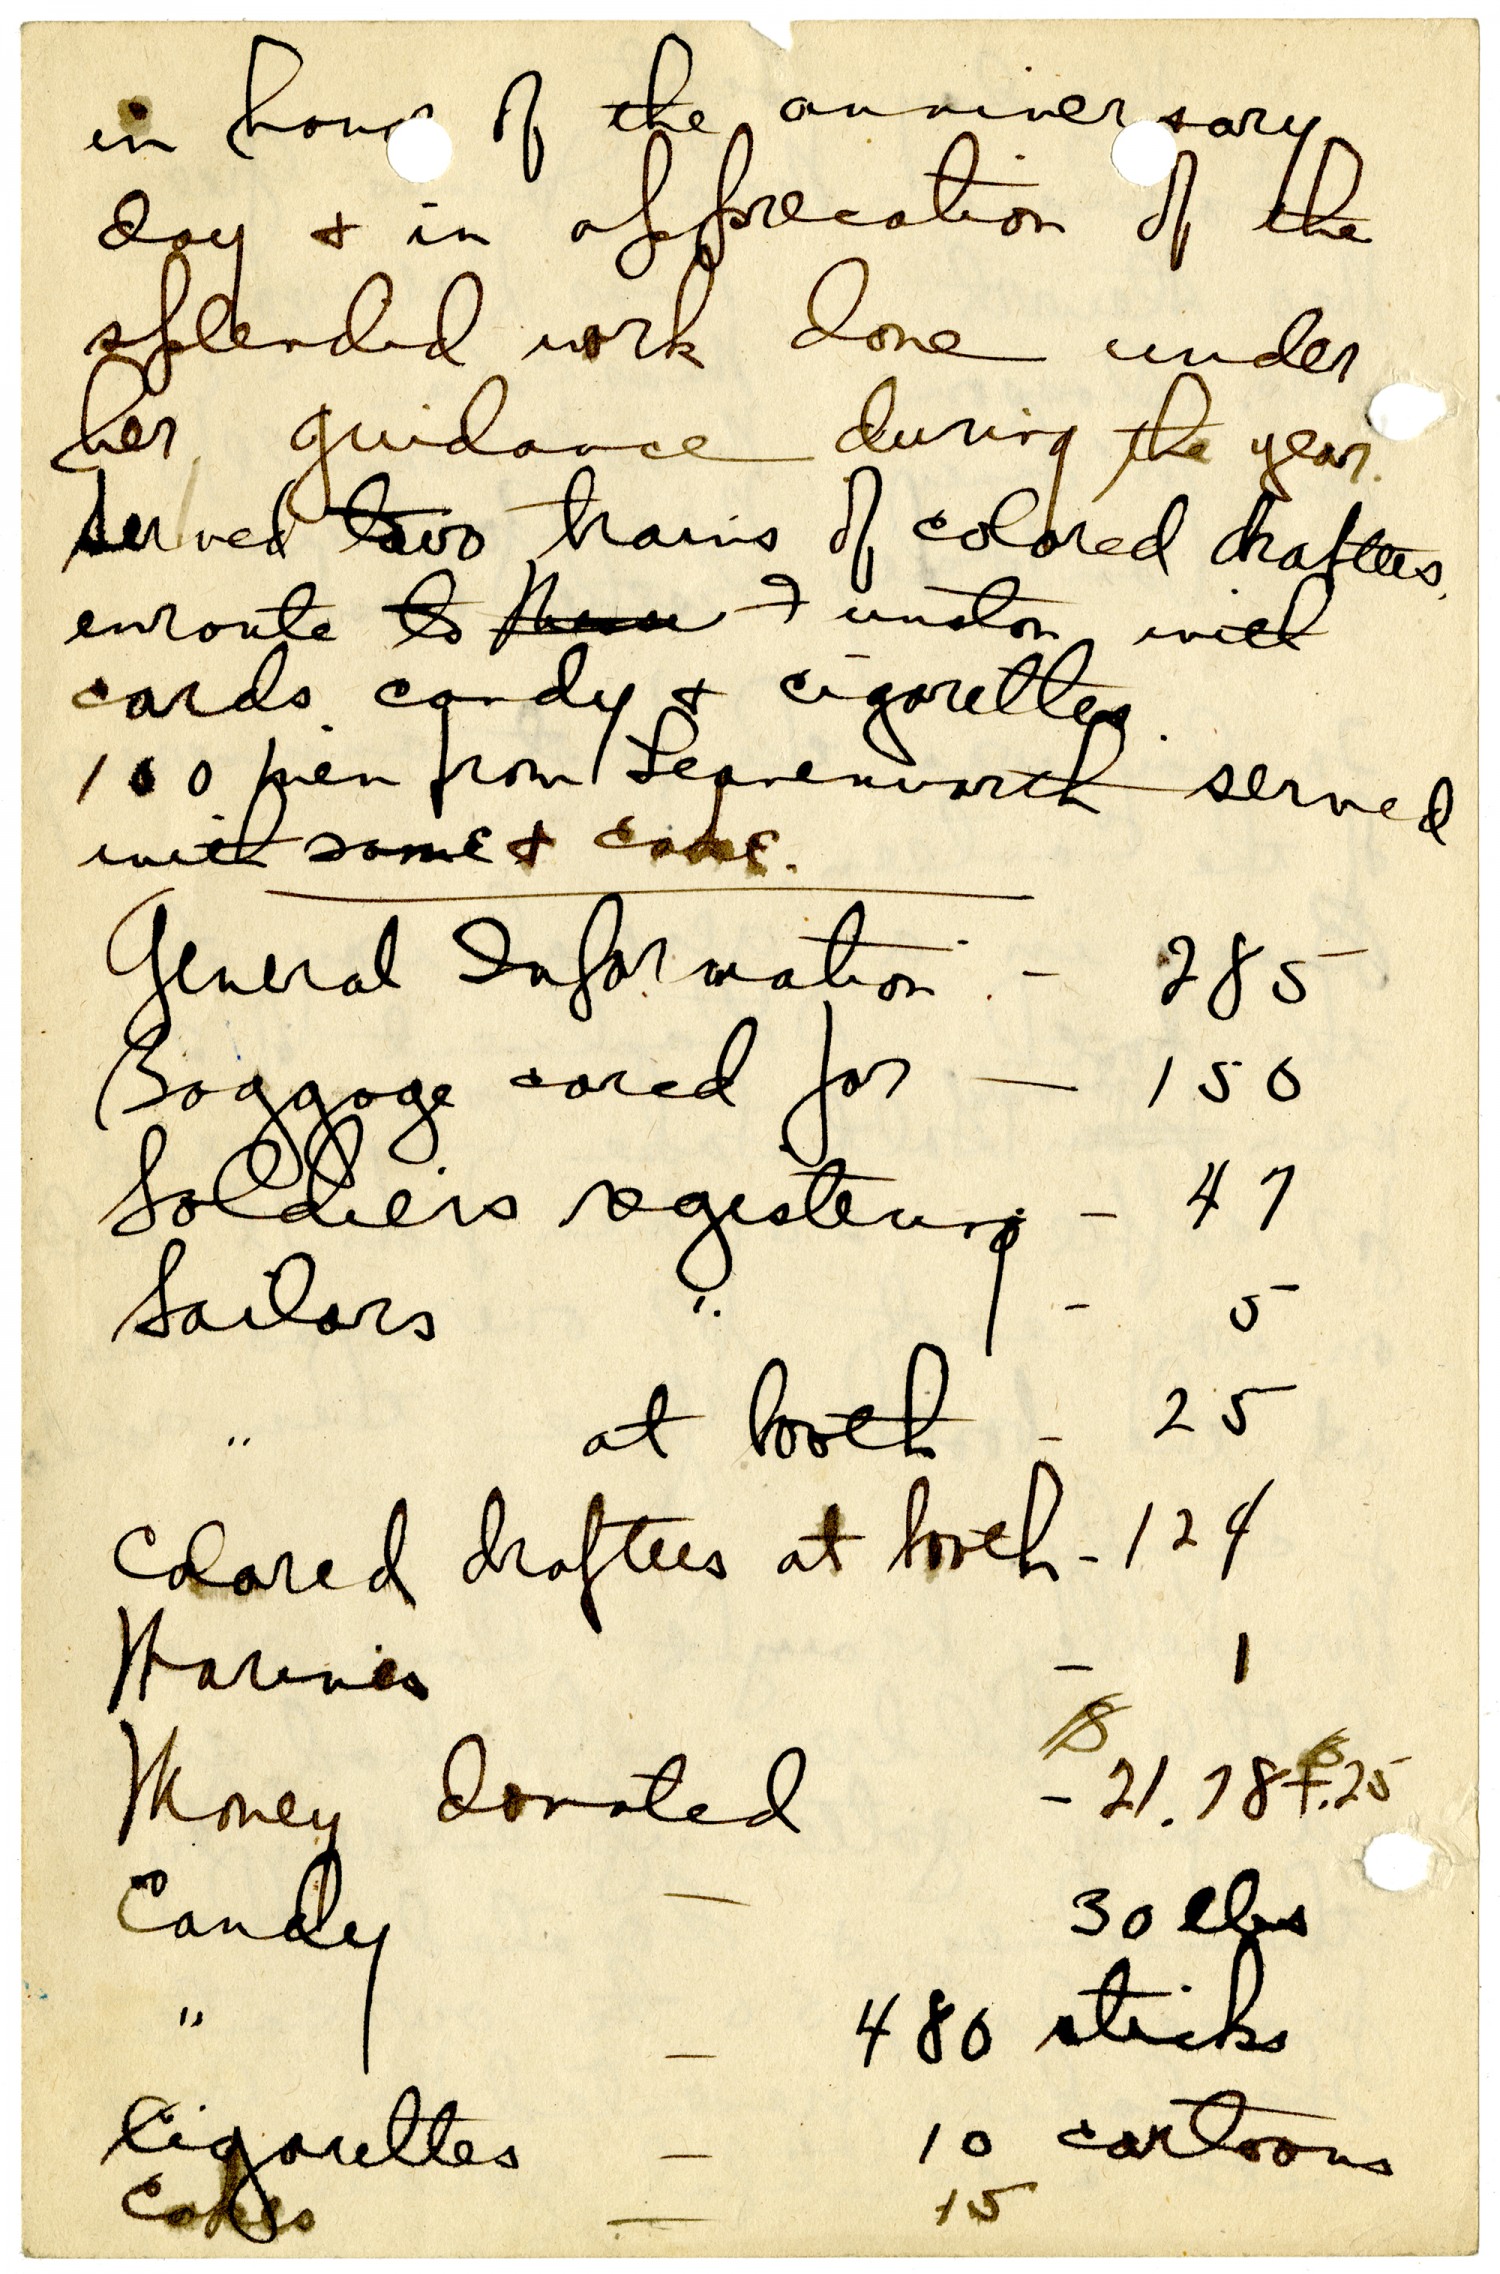 in honor of the anniversary
day & in apprecation of the
splended work done under
her guidance during the year.
served two trains of colored draftees
enroute to Funston with
cards candy & cigarettes.
100 men from Leavenworth served
with same & cake.
General Information - 285
Baggage cared for — 150
Soldiers registering - 47
Sailors " - 5
" at booth - 25
Colored draftees at booth - 124
Marines - 1
18
Money donated - 21.78+.25
Candy — 30 lbs
" — 480 sticks
Cigarettes — 10 cartoons
Cakes — 15